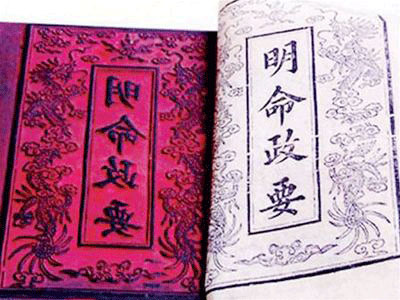 明命政要
明命政要